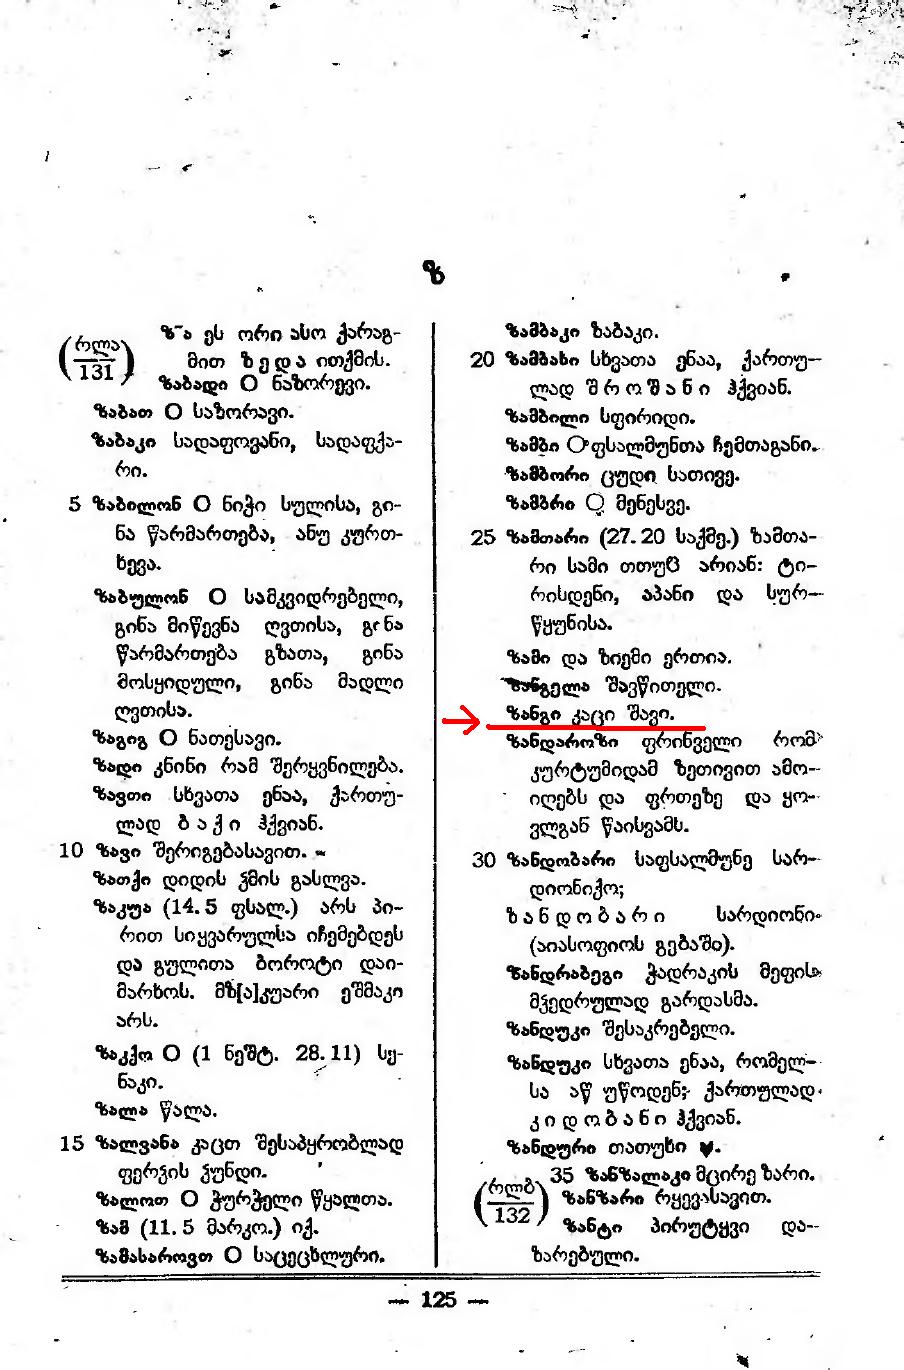 ზ
ზ~ა ეს ორი ასო ქარაგ-
მით ზედა ითქმის.
(რლა
131)
ზაბადი O ნაზორევი.
ზაბათ O საზორავი.
ზაბაკი სადაფოვანი, სადაფქა-
რი.
5 ზაბილონ O ნიჭი სულისა, გი-
ნა წარმართება, ანუ კურთ-
ხევა.
ზაბულონ O სამკვიდრებელი,
გინა მიწევნა ღვთისა, გინა
წარმართება გზათა, გინა
მოსყიდული, გინა მადლი
ღვთისა.
ზაგიგ O ნათესავი.
ზადი კნინი რამ შერყვნილება.
ზავთი სხვათა ენაა, ქართუ-
ლად ბაქი ჰქვიან.
10 ზავი შერიგებასავით.
ზათქი დიდის ჴმის გასლვა.
ზაკუა (14. 5 ფსალ.) არს პი-
რით სიყვარულსა იჩემებდეს
და გულითა ბოროტი დაი-
მარხოს. მზ[ა]კუარი ეშმაკი
არს.
ზაკქო O (1 ნეშტ. 28. 11) სე-
ნაკი.
ზალა წალა.
15 ზალვანა კაცთ შესაპყრობლად
ფერჴის ჴუნდი.
ზალოთ O ჭურჭელი წყალთა.
ზამ (11. 5 მარკო.) იქ.
ზამასაროვთ O საცეცხლური.
ზამბაკი ზაბაკი.
20 ზამბახი სხვათა ენაა, ქართუ-
ლად შროშანი ჰქვიან.
ზამბილი სფირიდი.
ზამბი O ფსალმუნთა ჩემთაგანი.
ზამბორი ცუდი სათივე.
ზამბრი O მენესვე.
25 ზამთარი (27. 20 საქმე.) ზამთა-
რი სამი თთუჱ არიან: ტი-
რისდენი, აპანი და სურ-
წყუნისა.
ზამი და ზიემი ერთია.
ზანგელა შავწითელი.
ზანგი კაცი შავი.
ზანდაროზი ფრინველი რომ
კურტუმიდამ ზეთივით ამო-
იღებს და ფრთეზე და ყო-
ვლგან წაისვამს.
30 ზანდობარი საფსალმუნე სარ-
დიონიქო;
ზანდობარი სარდიონი
(აიასოფიოს გებაში).
ზანდრაბეგი ჭადრაკის მეფის
მჴედრულად გარდასმა.
ზანდუკი შესაკრებელი.
ზანდუკი სხვათა ენაა, რომელ-
სა აწ უწოდენ; ქართულად
კიდობანი ჰქვიან.
ზანდური თათუხი
35 ზანზალაკი მცირე ზარი.
(რლბ
132)
ზანზარი რყევასავით.
ზანტი პირუტყვი და-
ზარებული.
— 125 —